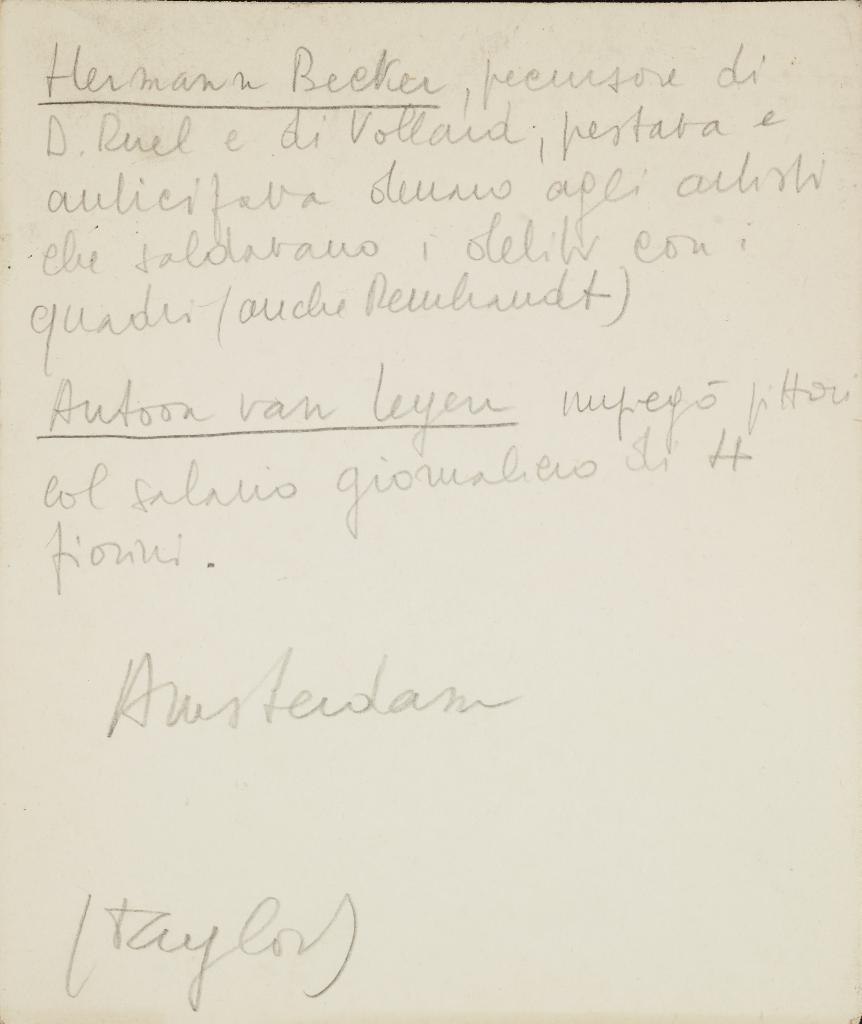 Hermann Becker, precursore di
D. Ruel e di Vollard, prestava e
anticipava denaro agli artisti
che saldavano i debiti con i
quadri (anche Rembrandt)
Antoon van Leyen impiegò pittori
col salario giornaliero di 4
fiorini.
Amsterdam
(Taylor)